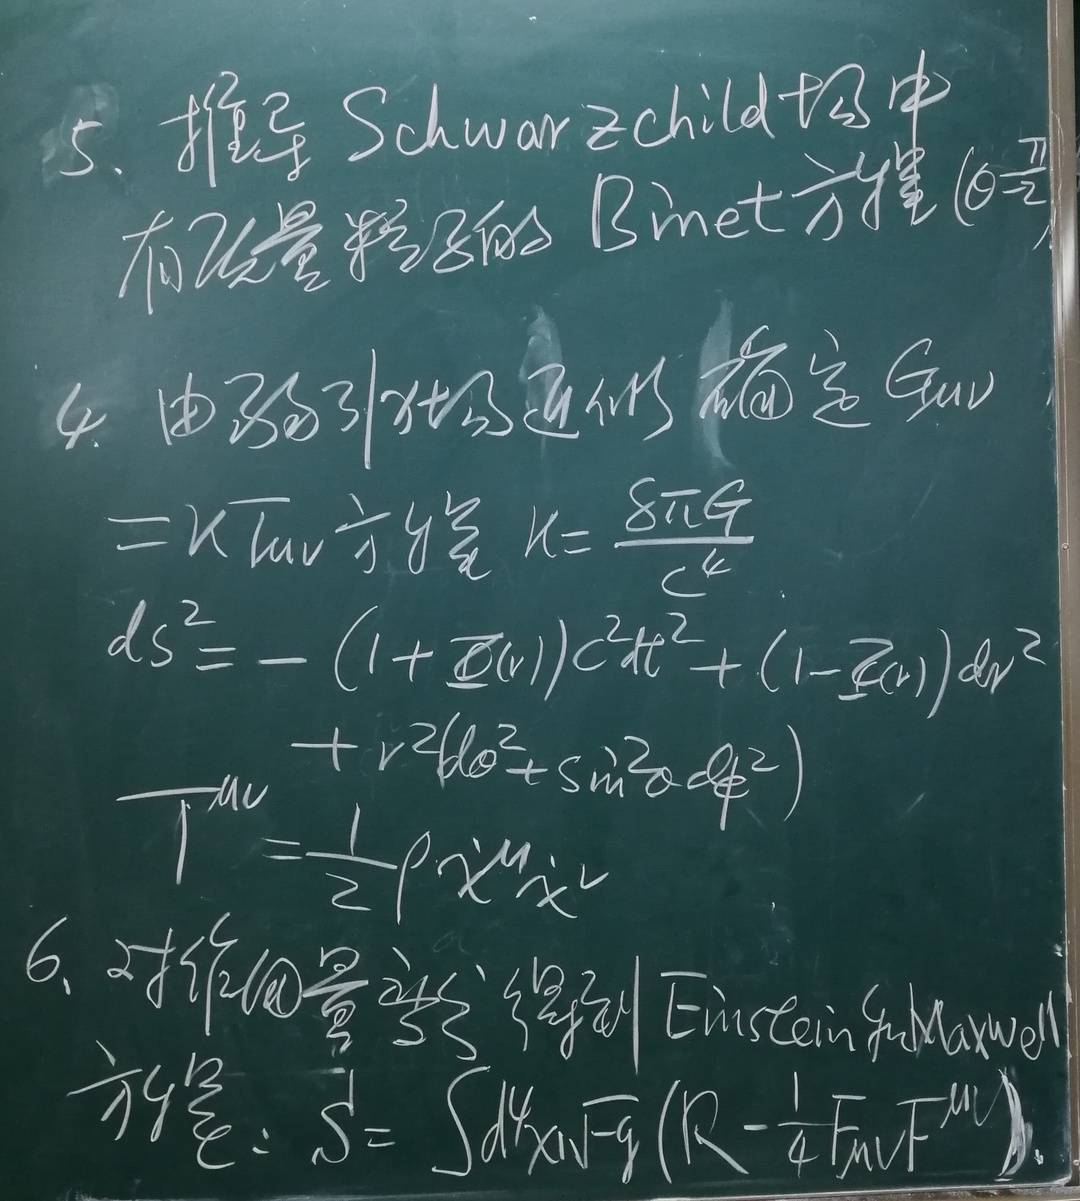 5、推导 Schwarzchild 场中
有质量粒子的 Binet 方程 (θ=π/2)
4. 由弱引力场近似 确定 Gμν
=κTμν 方程 κ= 8πG/c⁴
ds²= -(1+Φ(r))c²dt²+(1-Φ(r))dr²
+r²(dθ²+sin²θdφ²)
T^μν = 1/2 ρ ẋ^μ ẋ^ν
6、对作用量变分得到 Einstein 和 Maxwell
方程: S = ∫d⁴x√-g (R - 1/4 FμνF^μν).